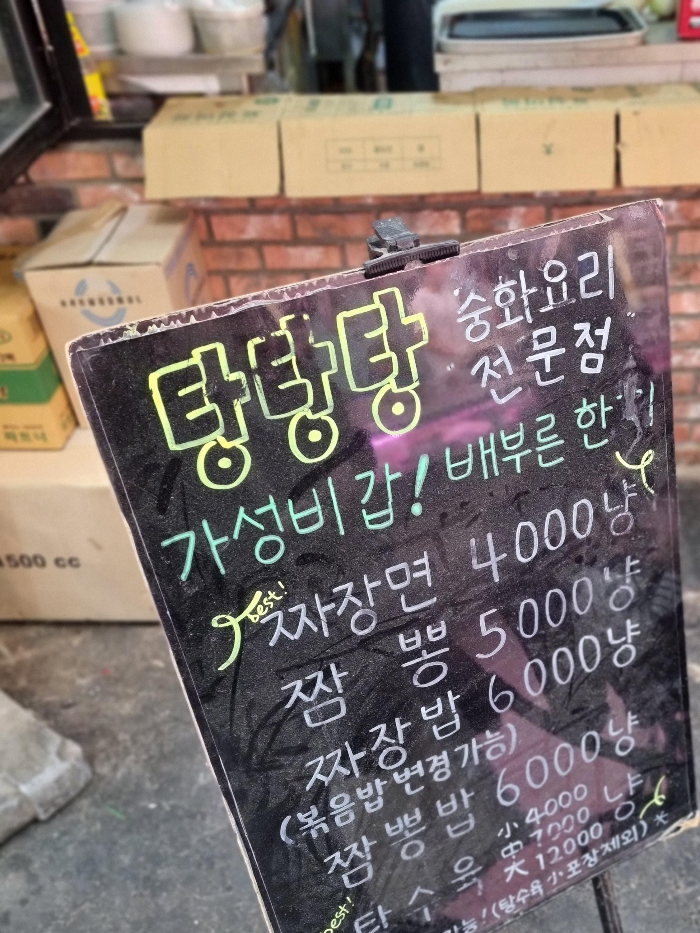 탕탕탕
"중화요리
전문점"
가성비 갑! 배부른 한
best!
짜장면 4000냥
짬 뽕 5000냥
짜장밥 6000냥
(볶음밥변경가능)
짬뽕밥 6000냥
best!
탕수육 小 4000
中 7000 냥
大 12000
(탕수육 小 포장제외) *
1500 cc